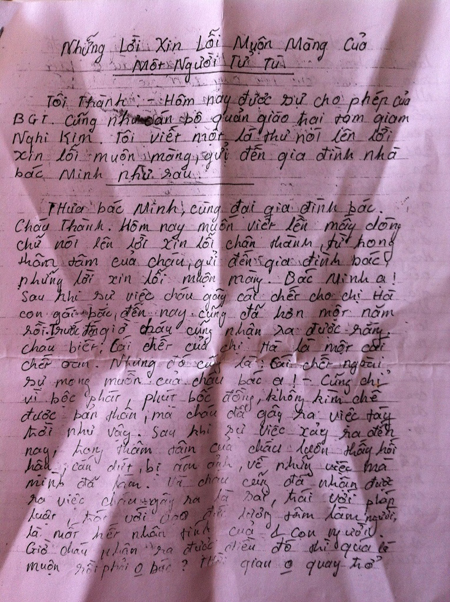 Những Lời Xin Lỗi Muộn Màng Của
Một Người Tử Tù
Tôi Thành: - Hôm nay được sự cho phép của
BGT. Cũng như cán bộ quản giáo hai tạm giam
Nghi Kim. Tôi viết một lá thư nói lên lời
xin lỗi muộn màng, gửi đến gia đình nhà
bác Minh như sau.
Thưa bác Minh, cùng đại gia đình bác.
Cháu Thành. Hôm nay muốn viết lên mấy dòng
chữ nói lên lời xin lỗi chân thành, từ trong
thâm tâm của cháu, gửi đến gia đình bác
những lời xin lỗi muộn màng. Bác Minh ạ!
Sau khi sự việc cháu gây cái chết cho chị Hà
con gái bác, đến nay cũng đã hơn một năm
rồi. Trước giờ cháu cũng nhận ra được rằng.
cháu biết. Cái chết của chị Hà là một cái
chết oan. Nhưng đó cũng là cái chết ngoài
sự mong muốn của cháu bác ạ! - Cũng chỉ
vì bột phát, phút bốc đồng, không kìm chế
được bản thân, mà cháu đã gây ra việc tày
trời như vậy. Sau khi sự việc xảy ra đến
nay, trong thâm tâm của cháu luôn thấy hối
hận, cắn dứt, bị ám ảnh, về những việc mà
mình đã làm. Và cháu cũng đã nhận được
ra việc cháu gây ra là sai trái với pháp
luật, trái với đạo đức lương tâm làm người,
là mất hết nhân tính của 1 con người.
Giờ cháu nhận ra được điều đó thì quá
muộn rồi phải o bác? Thời gian o quay trở